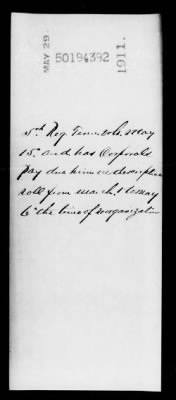 MAY 29.
50194392
1911.
5th Reg. Tenn. vols. May
15th and has Corporals
pay due him on descriptive
roll from March 1 to may
6th the time of reorganization